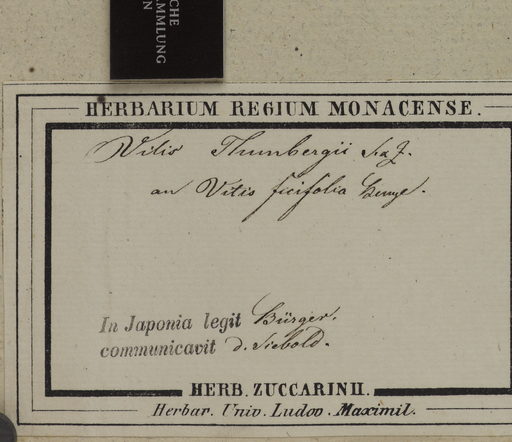 CHE
AMMLUNG
N
HERBARIUM REGIUM MONACENSE.
Vitis Thunbergii S.&Z.
an Vitis ficifolia Bunge.
In Japonia legit Bürger.
communicavit d. Siebold.
HERB. ZUCCARINII.
Herbar. Univ. Ludov. Maximil.